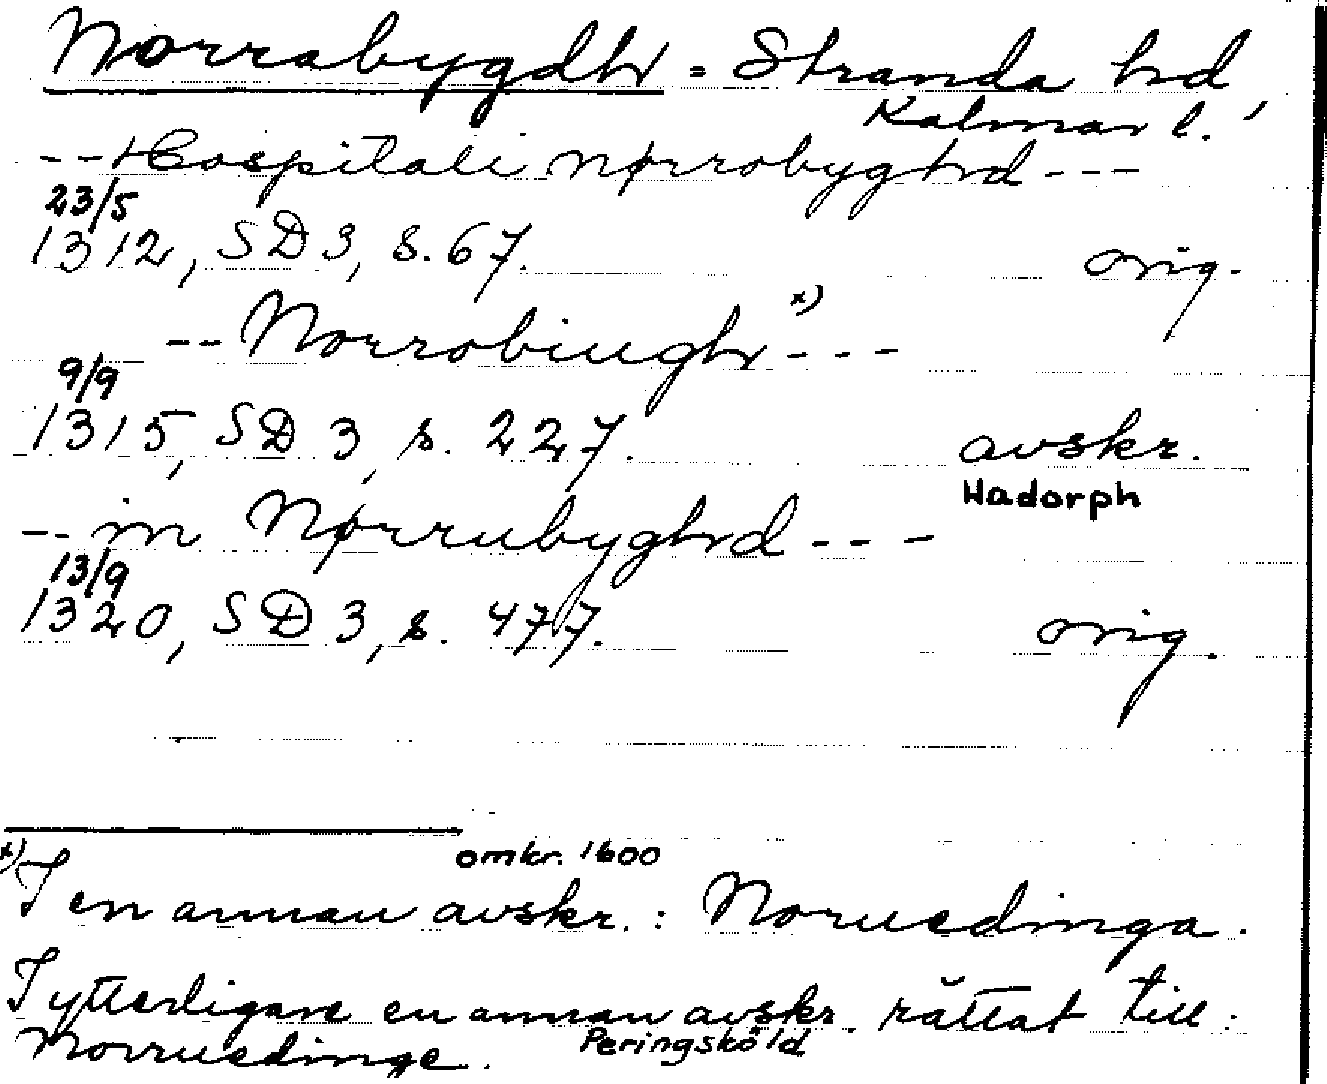 Norrabygdhr = Stranda hd
Kalmar l.
--Hospitali nørrobyghrd---
23/5
1312, SD 3, s. 67. orig.
--Norrobiughr x) ---
9/9
1315, SD 3, s. 227. avskr.
Hadorph
--in Nørrubyghrd---
13/9
1320, SD 3, s. 477. orig.
omkr. 1600
x) I en annan avskr.: Noruedinga.
I ytterligare en annan avskr. rättat till:
Norruedinge. Peringsköld